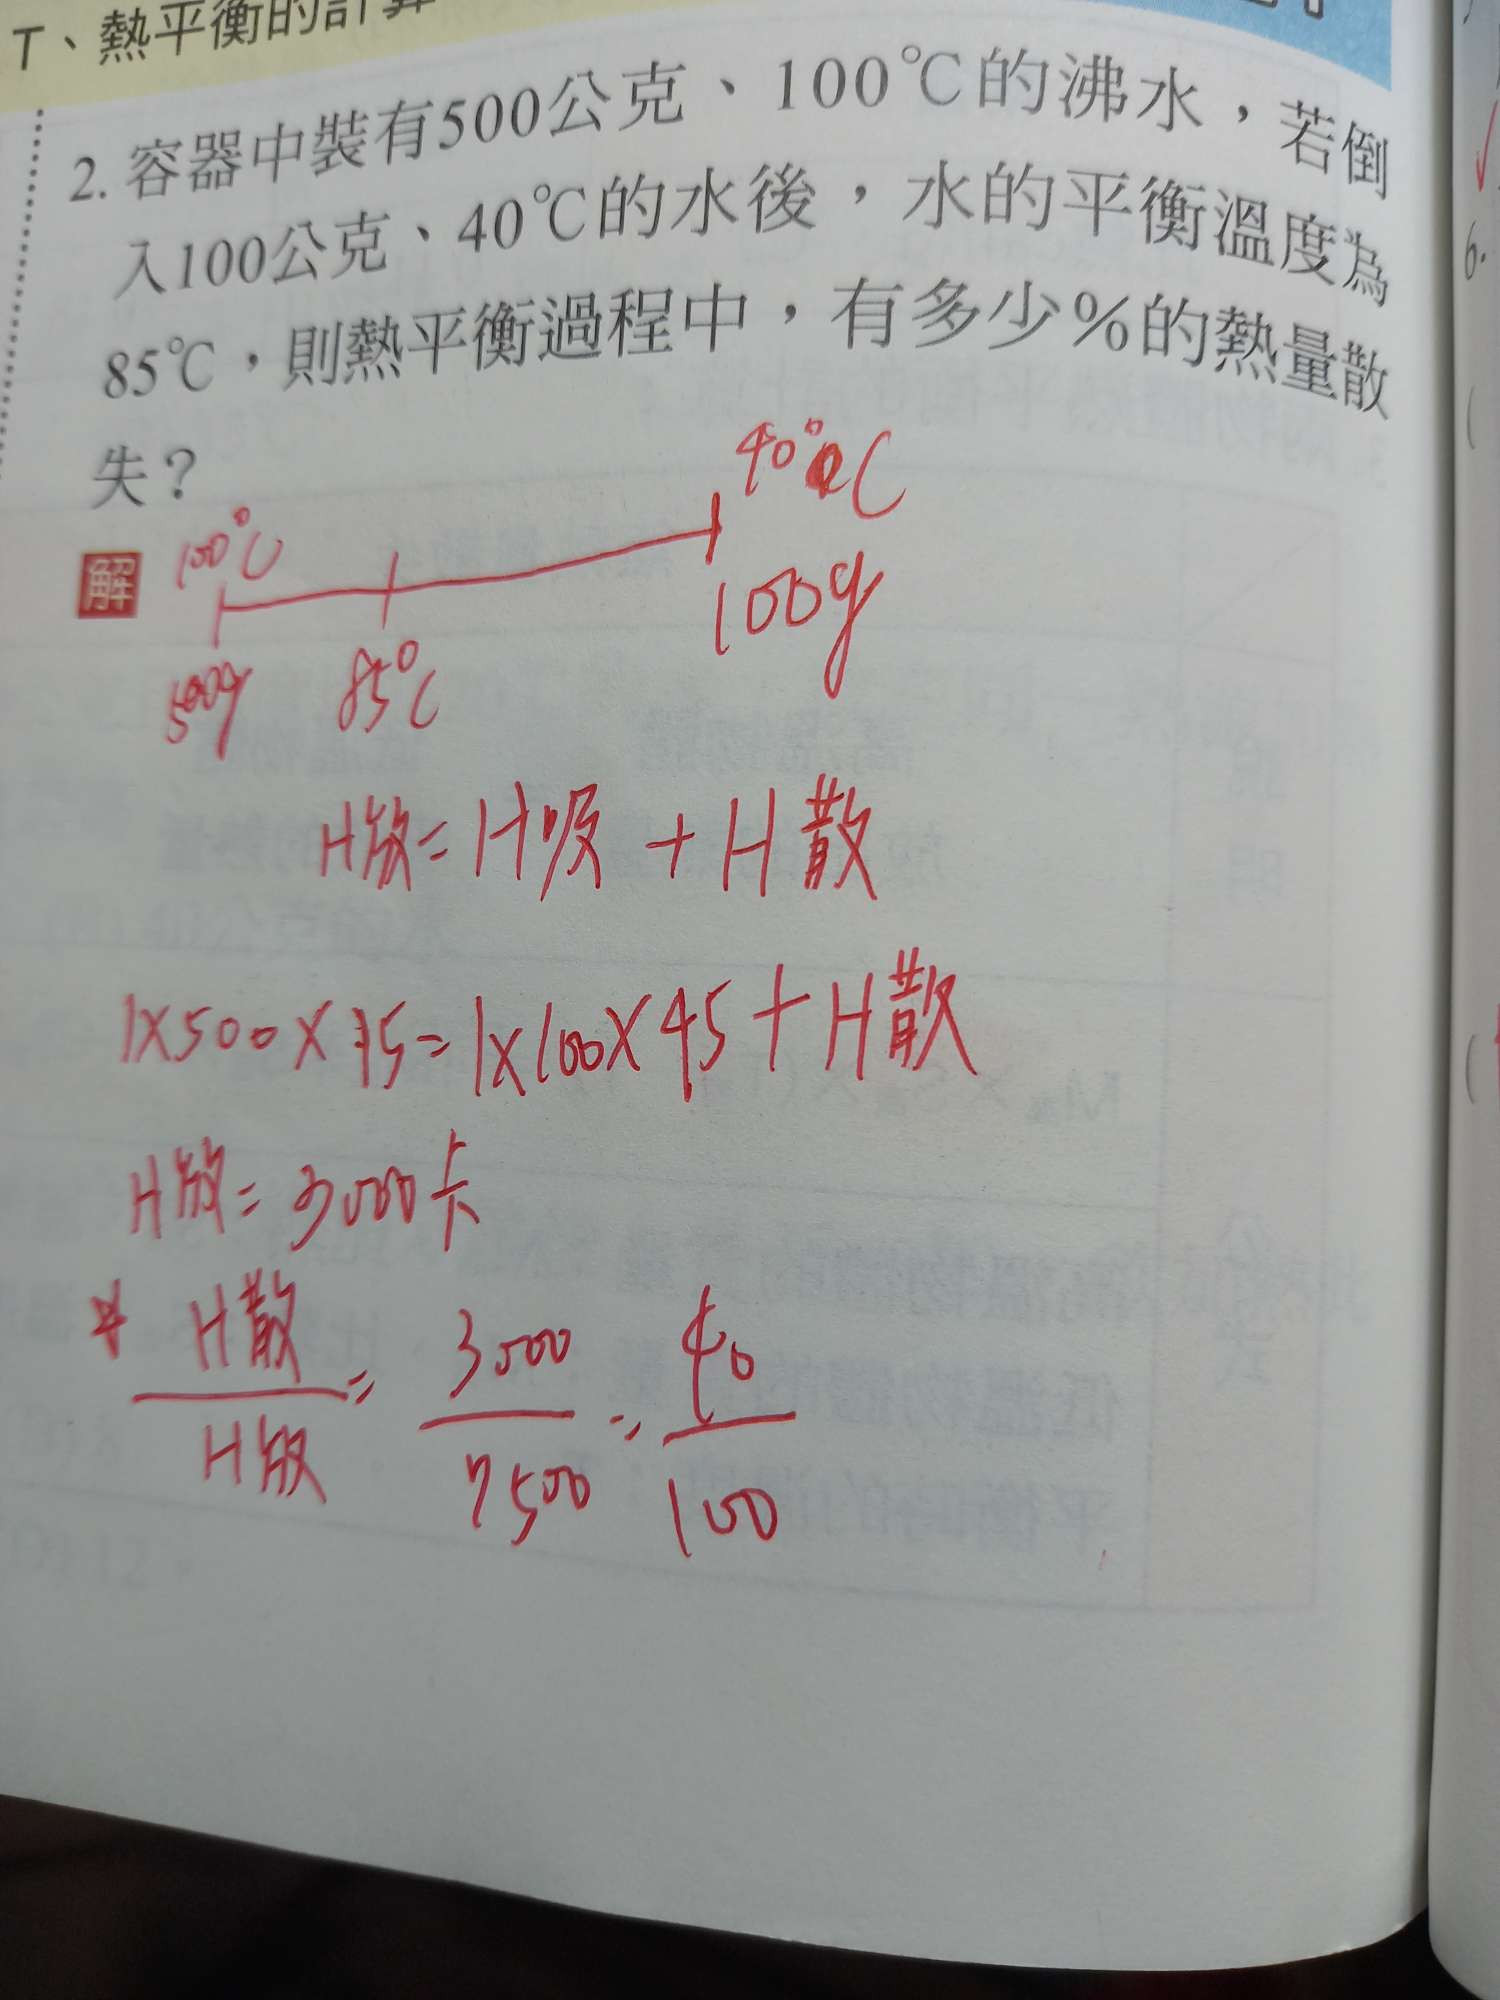 T、熱平衡的計算
2. 容器中裝有500公克、100℃的沸水，若倒
入100公克、40℃的水後，水的平衡溫度為
85℃，則熱平衡過程中，有多少%的熱量散
失？
解
100°C
40°C
500g
85°C
100g
H放=H吸+H散
1×500×15=1×100×45+H散
H放=3000卡
* H散/H放=3000/7500=40/100
6.